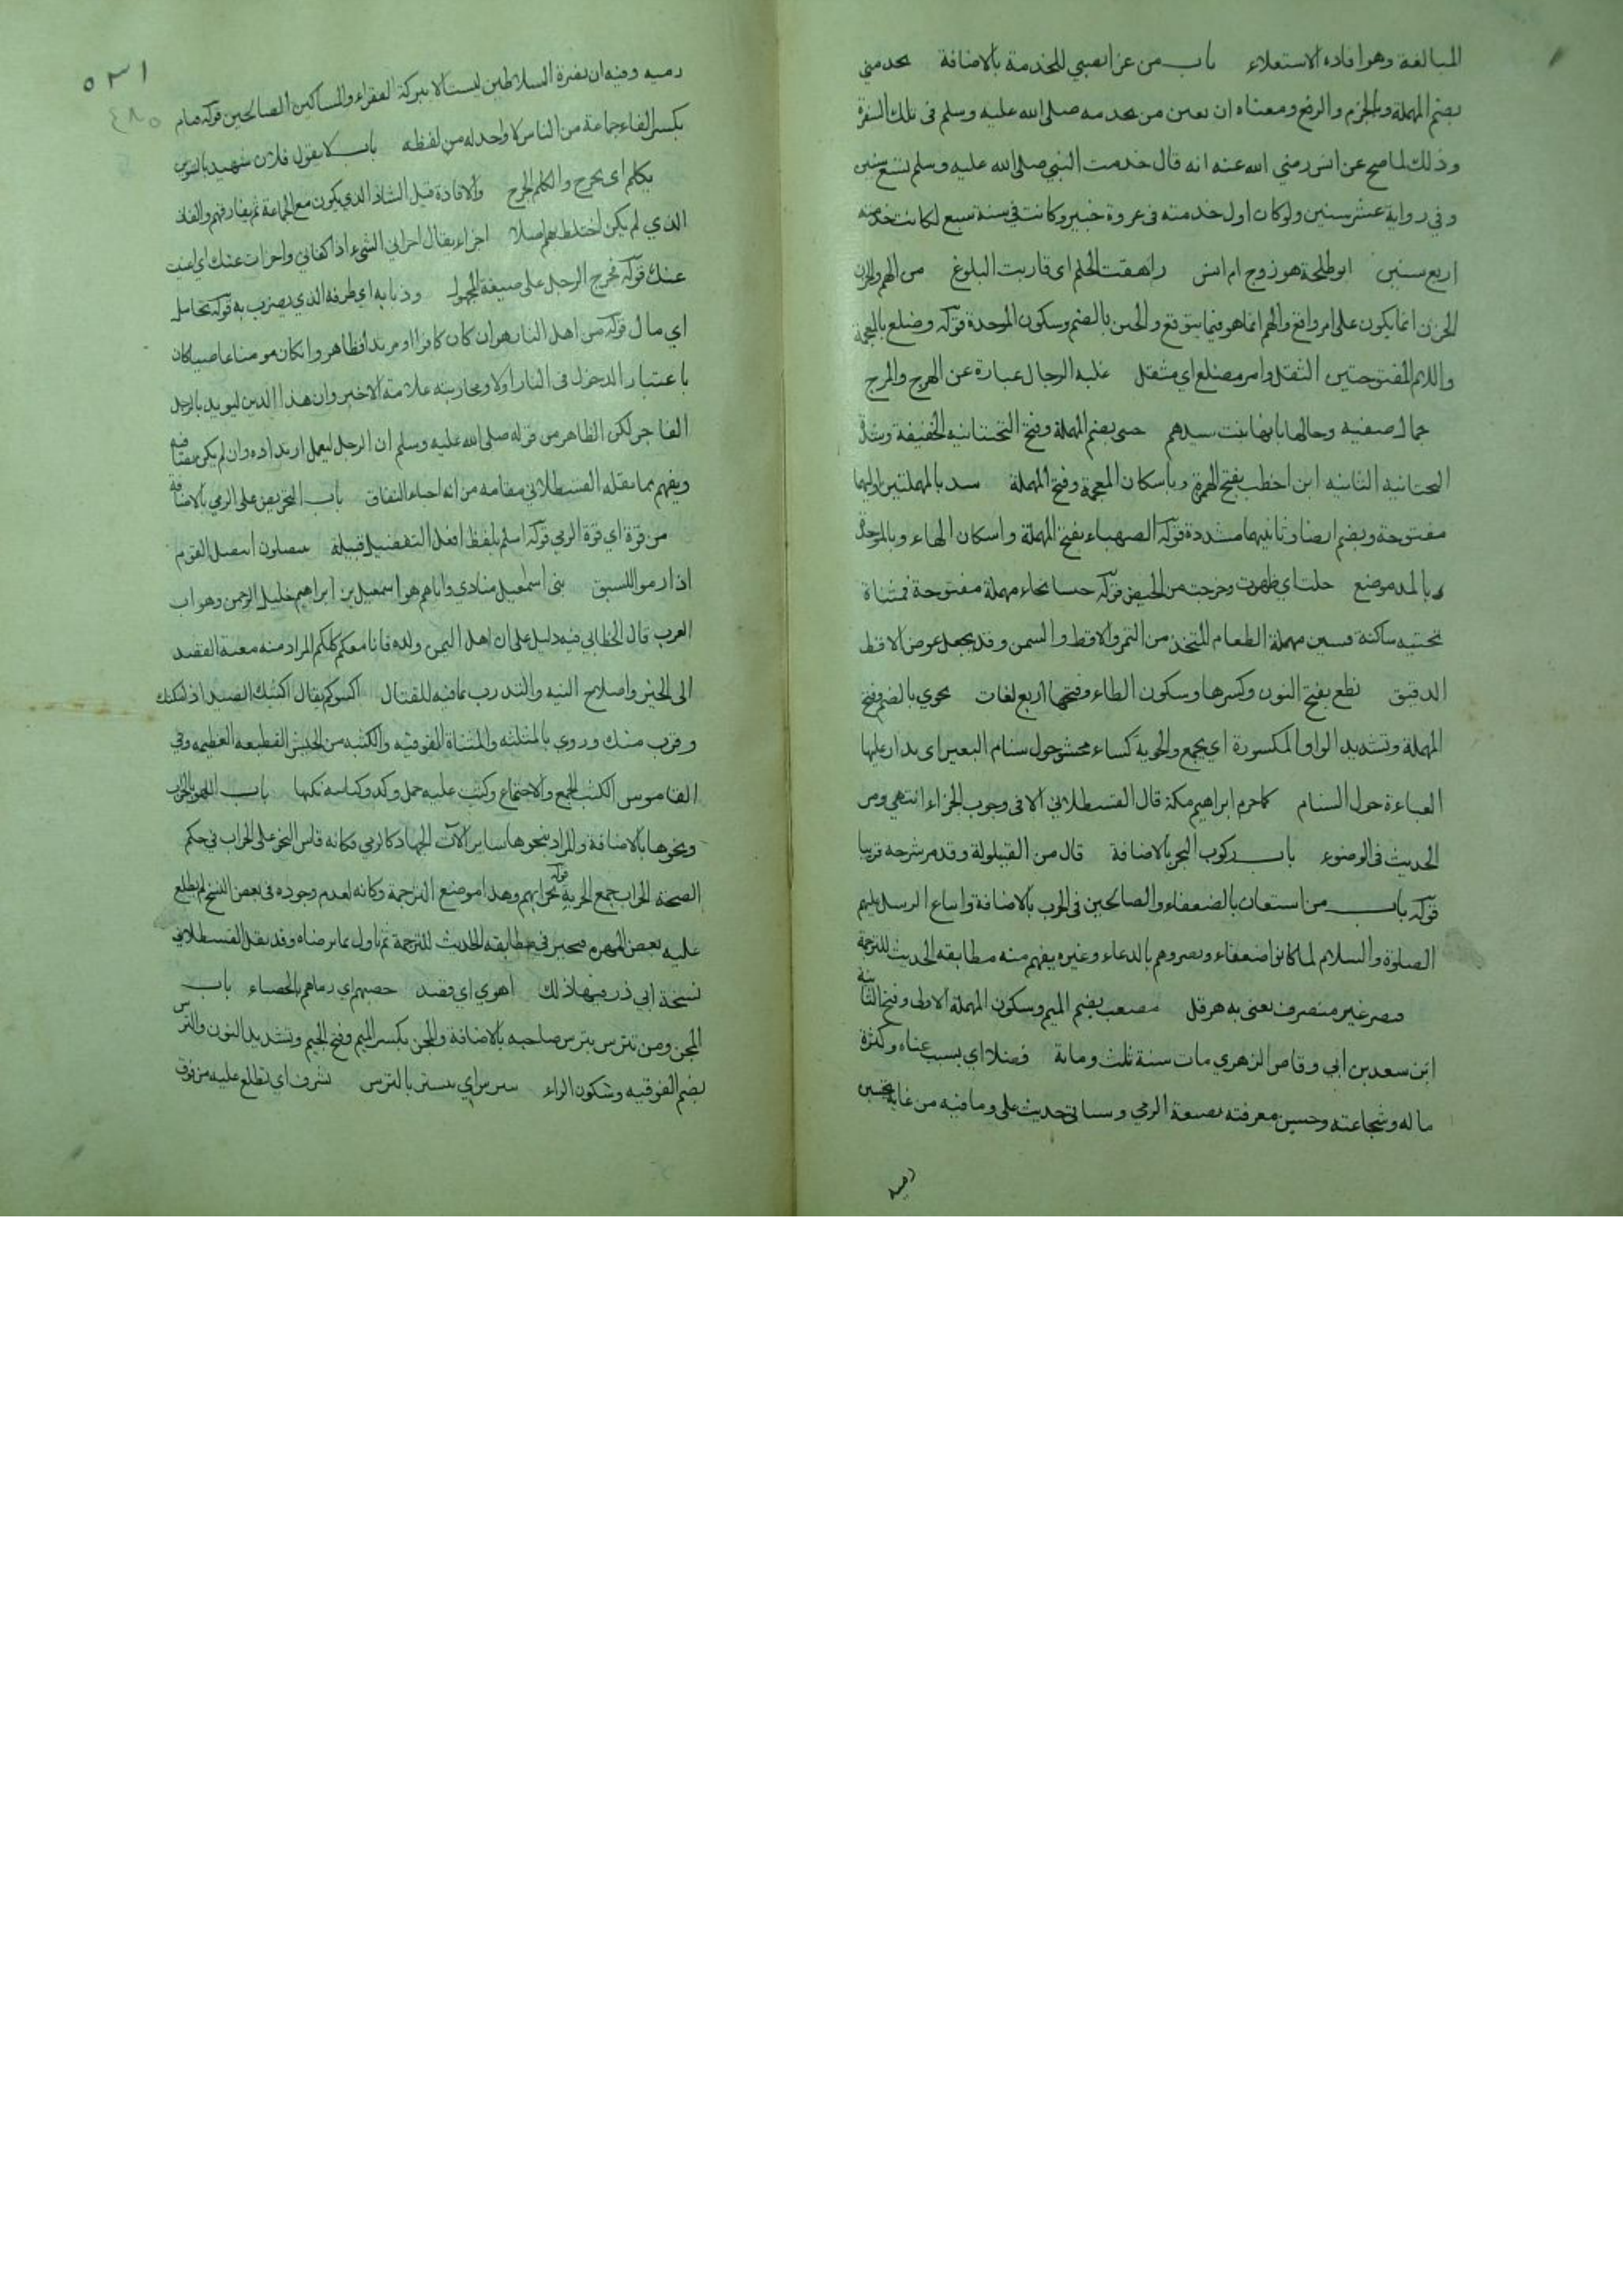 المبالغة وهو افاده الاستعلاء باب من غزا بصبي للخدمة بالاضافة يخدمني
بضم المهملة وبالجزم والرفع ومعناه ان يعين من يخدمه صلى الله عليه وسلم فى تلك السفرة
وذلك لما صح عن انس رضي الله عنه انه قال خدمت النبي صلى الله عليه وسلم تسع سنين
وفي رواية عشر سنين ولو كان اول خدمته فى غزوة خيبر وكانت في سنة سبع لكانت خدمته
اربع سنين ابو طلحة هو زوج ام انس راهقت الحلم اى قاربت البلوغ من الهم والحزن
الحزن انما يكون على امر واقع والهم انما هو فيما يتوقع والجبن بالضم وسكون الموحدة قوله وضلع بالمعجمة
واللام المفتوحتين الثقل وامر مضلع اي مثقل غلبه الرجال عبارة عن الهرج والمرج
جمال صفيه وحالها بانها بنت سيدهم حيى بضم المهملة وفتح التحتانيه الخفيفة وشدة
التحتانيه الثانيه ابن اخطب بفتح الهمزة وباسكان المعجمة وفتح المهملة سد بالمهملتين اوليهما
مفتوحة وبضم ايضا وثانيهما مشددة قوله الصهباء بفتح المهملة واسكان الهاء وبالموحدة
وبالمد موضع حلت اي ظهرت وخرجت من الحيض قوله حيسا بحاء مهملة مفتوحة فمثناة
تحتيه ساكنة فسين مهملة الطعام المتخذ من التمر والاقط والسمن وقد يجعل عوض الاقط
الدقيق نطع بفتح النون وكسرها وسكون الطاء وفتحها اربع لغات يحوي بالضم وفتح
المهملة وتشديد الواو المكسورة اي يجمع والحوية كساء محشو حول سنام البعير اى يدار عليها
العباءة حول السنام كما حرم ابراهيم مكة قال القسطلاني الا فى وجوب الجزاء انتهى ومر
الحديث فى الوضوء باب ركوب البحر بالاضافة قال من القيلولة وقد مر شرحه قريبا
قوله باب من استعان بالضعفاء والصالحين فى الحرب بالاضافة واتباع الرسل عليهم
الصلوة والسلام لما كانوا ضعفاء ونصروهم بالدعاء وغيره يفهم منه مطابقه الحديث للترجمة
قيصر غير منصرف يعنى به هرقل مصعب بضم الميم وسكون المهملة الاولى وفتح الثانية
ابن سعد بن ابي وقاص الزهري مات سنة ثلث وماىة فضلا اي بسبب غناه وكثرة
ماله وشجاعته وحسن معرفته بصنعة الرمي وسياتى حديث على وما فيه من غاية تحسين
رميه
٥٣١
٤٨٥
رميه وفيه ان نصرة السلاطين ليست الا ببركة الفقراء والمساكين الصالحين قوله فىام
بكسر الفاء جماعة من الناس لا واحد له من لفظه باب لا يقول فلان شهيد بالتنوين
يكلم اى يجرح والكلم الجرح ولا فاذة قيل الشاذ الذي يكون مع الجماعة ثم يفارقهم والفاذ
الذي لم يكن اختلط بهم اصلا اجزاء يقال اجزاني الشيء اذا كفاني واجزات عنك اي اغنيت
عنك قوله فخرج الرجل على صيغة المجهول وذبابه اي طرفه الذي يضرب به قوله تحامل
اي مال قوله من اهل النار هو ان كان كافرا او مرتدا فظاهر وان كان مومنا عاصيا كان
باعتبار الدخول فى النار اولا ومحاربته علامة الاخير وان هذا الدين ليويد بالرجل
الفاجر لكن الظاهر من قوله صلى الله عليه وسلم ان الرجل ليعمل ارتداده وان لم يكن
ويفهم مما نقله القسطلاني مقامه من انه احباء النفاق باب التحريض على الرمي بالاضافة
من قوة اي قوة الرمي قوله اسلم بلفظ افعل التفضيل قبيلة ينتضلون انتضل القوم
اذا رموا للسبق بنى اسمعيل منادي واباهم هو اسمعيل بن ابراهيم خليل الرحمن وهو اب
العرب قال الخطابي فيه دليل على ان اهل اليمن ولده فانا معكم كلكم المراد منه معية القصد
الى الخير واصلاح النيه والتدرب مما فيه للقتال اكثبوكم يقال اكثبك الصيد اذا امكنك
وقرب منك وروي بالمثلثه والمثناة الفوقيه والكثبه من الجيش القطيعه العظيمه وفي
القاموس الكثب الجمع والاجتماع وكثب عليه حمل وكر وكنانته نكبها باب اللهو بالحراب
ونحوها بالاضافة والمراد بنحوها ساير الات الجهاد كالرمي فكانه قاس النحو على الحراب في حكم
الصحة الحراب جمع الحربة قوله بحرابهم وهذا موضع الترجمة وكانه لعدم وجوده فى بعض النسخ لم يطلع
عليه بعض المهره فتحير في مطابقه الحديث للترجمة ثم تاول بما يرضاه وقد نقل القسطلاني
نسخة ابي ذر فيها ذلك اهوى اي قصد حصبهم اي رماهم بالحصباء باب
المجن ومن تترس بترس صاحبه بالاضافة والمجن بكسر الميم وفتح الجيم وتشديد النون والترس
بضم الفوقيه وسكون الراء يترس اي يستتر بالترس تشرف اي تطلع عليه من فوق